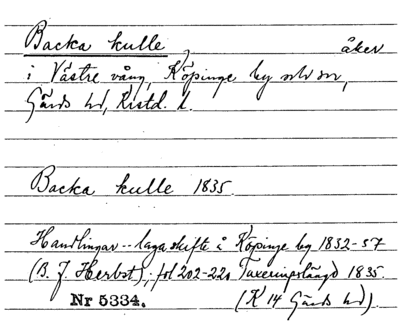 Backa kulle, åker
i Västre vång, Köpinge by och sn,
Gärds hd, Kristd. l.
Backa kulle 1835.
Handlingar -- laga skifte å Köpinge by 1832-57
(B. J. Herbst); fol 202-220 Taxeringslängd 1835.
Nr 5334. (K 14 Gärds hd)